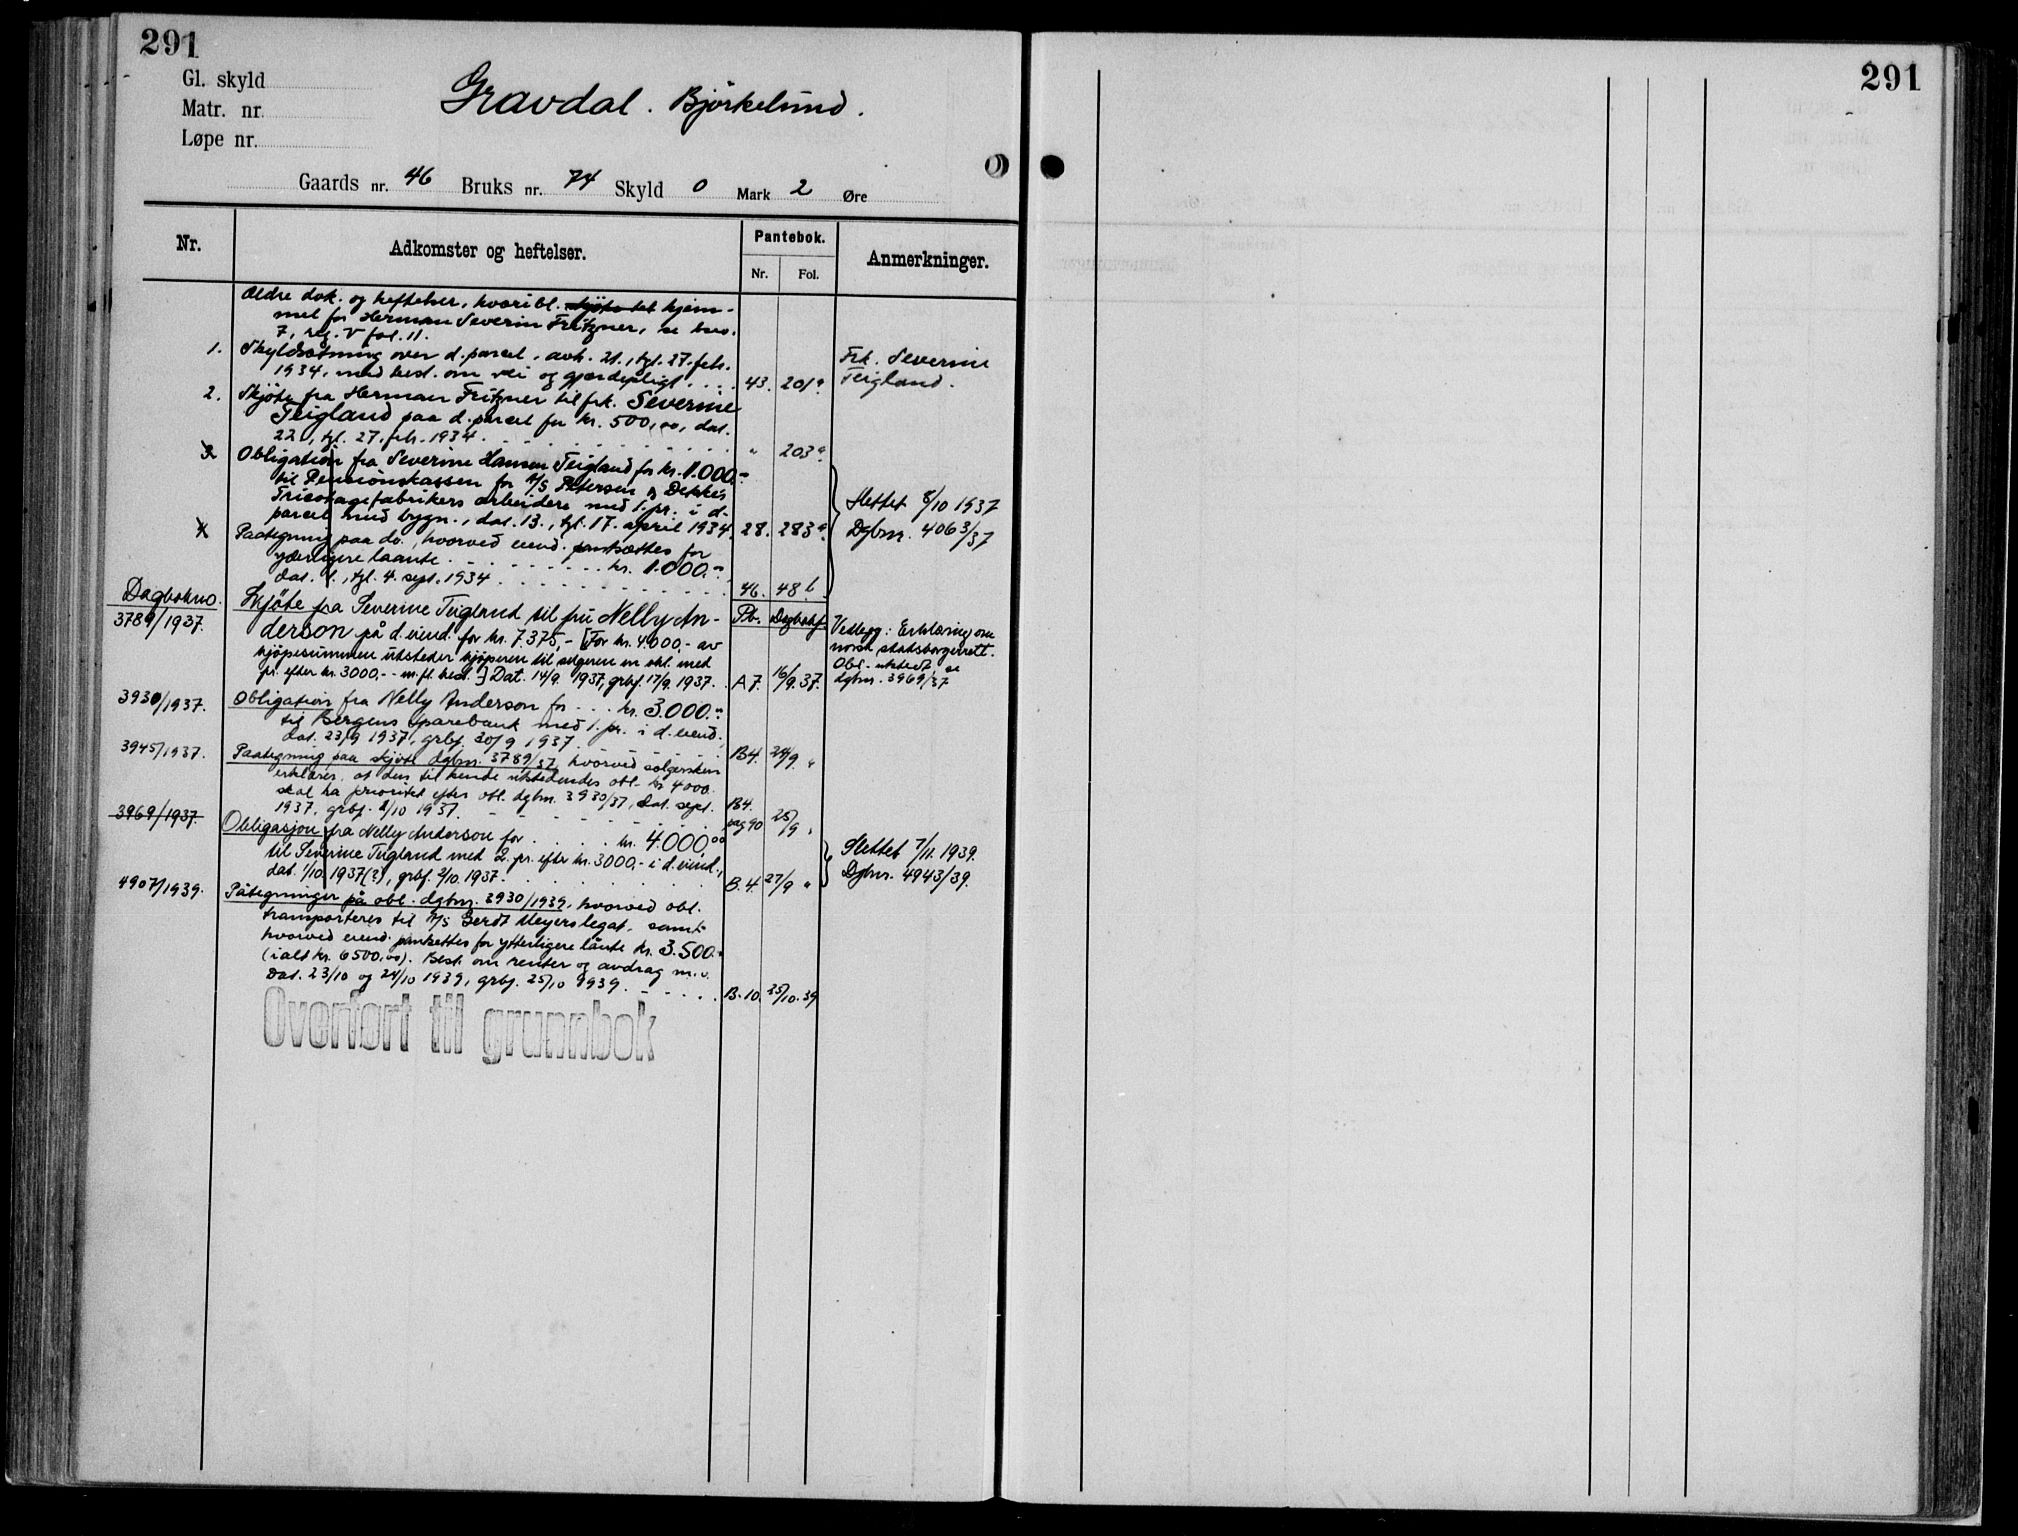 291
291
Gl. skyld
Matr. nr.
Løpe nr.
Gravdal. Bjørkelund.
Gaards nr. 46 Bruks nr. 74 Skyld 0 Mark 2 Øre
Nr. Adkomster og heftelser. Pantebok. Anmerkninger.
Nr. Fol.
Ældre dok. og heftelser, hvoribl. hjem-
mel for Herman Severin Fritzner, se bno.
7, reg. V fol. 11.
1. Skyldsætning over d. parcel, avh. 21., tgl. 27. feb. Frk. Severine
1934, med best. om vei og gjerdepligt. . . . 43. 201a Teigland.
2. Skjøte fra Herman Fritzner til frk. Severine
Teigland paa d. parcel for kr. 500,00, dat.
22, tgl. 27. feb. 1934. . . . " 203a
3. Obligation fra Severine Hansen Teigland for kr. 1.000.-
til Pensionskassen for A/S Petersen & Dekkes
Tricotagefabrikers arbeidere med 1. pr. i d. Slettet 8/10 1937
parcel med bygn., dat. 13., tgl. 17. april 1934. 28. 283a Dgbnr. 4063/37
4. Paategning paa do., hvorved eiend. pantsættes for
yderligere laante . . . . kr. 1.000.-
dat. 1., tgl. 4. sept. 1934 . . . . 46. 48 b
Dagbokno. Pb. Dagbokf.
3789/1937. Skjøte fra Severine Teigland til fru Nelly An-
derson på d. eiend. for kr. 7375,- [For kr. 4.000,- av Vedlegg: Erklæring om
kjøpesummen utsteder kjøperen til selgeren en obl. med norsk statsborgerrett.
pr. efter kr. 3000,- - m. fl. best.] Dat. 14/9 1937, grbf. 17/9 1937. A 7. 16/9. 37. Obl. utstedt, se
dgbnr. 3969/37
3930/1937. Obligation fra Nelly Anderson for . . . kr. 3.000.-
til Bergens Sparebank med 1. pr. i d. eiend.,
dat. 23/9 1937, grbf. 30/9 1937. B4. 24/9. "
3945/1937. Paategning paa skjøte dgbnr. 3789/37, hvorved selgersken
erklærer, at den til hende utstedendes obl. kr 4000.
skal ha prioritet efter obl. dgbnr. 3930/37, dat. sept.
1937, grbf. 2/10 1937. B4. pag 90 25/9 "
3969/1937. Obligasjon fra Nelly Anderson for . . . . kr. 4.000.00
til Severine Teigland med 2. pr. efter kr. 3000,- i d. eiend., Slettet 7/11. 1939.
dat. 1/10 1937(?), grbf. 2/10. 1937. B. 4. 27/9 " Dgbnr. 4943/39.
4907/1939. Påtegninger på obl. dgbnr. 3930/1939, hvorved obl.
transporteres til A/S Gerdt Meyers legat, samt
hvorved eiend. pantsettes for ytterligere lånte kr. 3.500.-
(ialt kr. 6500,00). Best. om renter og avdrag m.v.
Dat. 23/10 og 24/10 1939, grbf. 25/10 1939. B. 10. 25/10. 39
Overført til grunnbok